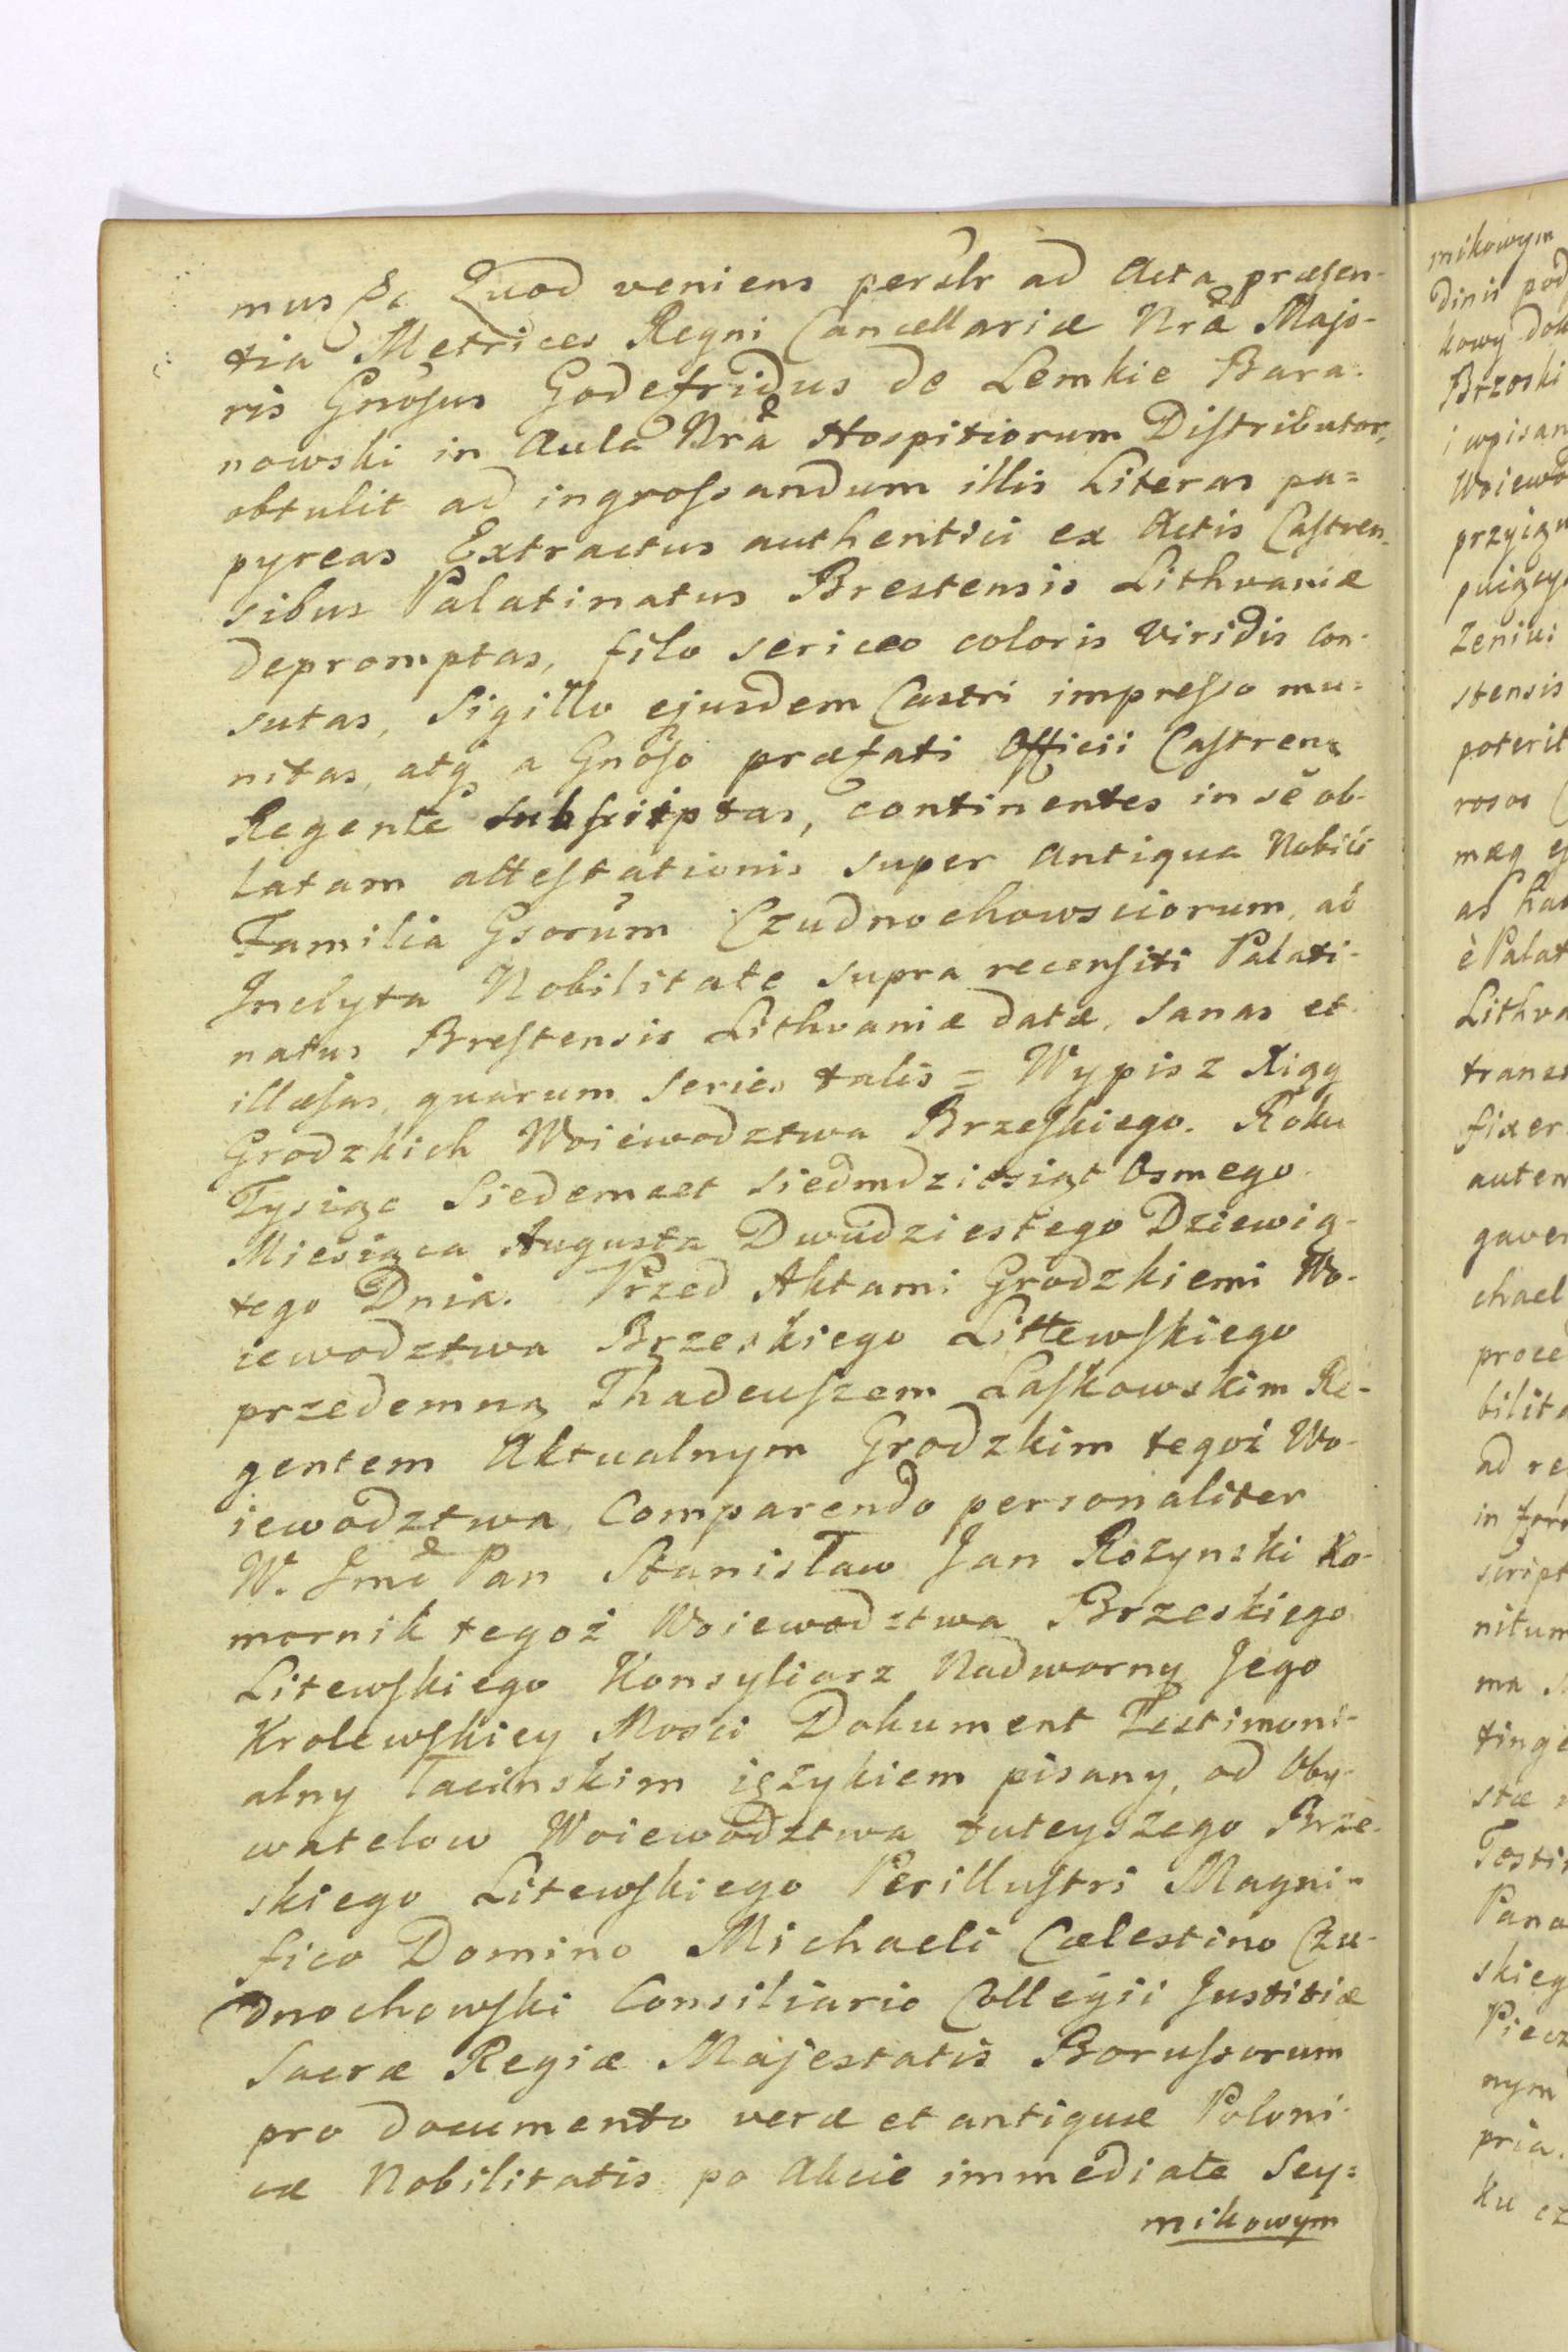 mus &c Quod veniens persłr ad Acta præſen-
tia Metrices Regni Cancellariæ Nræ Majo-
ris Gnoſus Godefridus de Lemkie Bara-
nowski in Aula Nra Hospitiorum Diſtributor,
obtulit ad ingroſsandum illis Literas pa=
pyreas Extractus authentici ex Actis Caſtren-
sibus Palatinatus Brestensis Lithvaniæ
depromptas, filo sericeo coloris viridis con-
sutas, Sigillo ejusdem Castri impreſso mu=
nitas, atq a Gnoſo præfati Officii Caſtren:
Regente subſcriptas, continentes in se ob-
latam atteſtationis super antiqua Nobili
Familia Gsorum Czudnochowsciorum, ab
Inclyta Nobilitate supra recenſiti Palati-
natus Breſtensis Lithvaniæ datæ, sanas et
illæſas, quarum Series talis = Wypis z Xiąg
Grodzkich Woiewodztwa Brzeſkiego. Roku
Tysiąc Siedemset siedmdziesiąt Osmego
Miesiąca Augusta Dwudziestego Dziewią-
tego Dnia. Przed Aktami Grodzkiemi Wo-
iewodztwa Brzeskiego Littewſkiego
przedemną Thadeuſzem Laſkowskim Re-
gentem Aktualnym Grodzkim tegoż Wo-
iewodztwa, Comparendo personaliter
W. Jmć Pan Stanisław Jan Rozynski Ko-
mornik tegoż Woiewodztwa Brzeskiego
Litewſkiego Konsyliarz Nadworny Jego
Krolewſkiey Mosci Dokument Testimoni-
alny łacinskim ięzykiem pisany, od Oby-
watelow Woiewodztwa tuteyszego Brze-
skiego Litewſkiego Perilluſtri Magni-
fico Domino Michaeli Cælestino Czu-
dnochowſki Consiliario Collegii Justitiæ
Sacræ Regiæ Majestatis Boruſsorum
pro documento veræ et antiquæ Poloni-
cæ Nobilitatis po Akcie immediate Sey=
mikowym
mikowym
dinis pod
kowy dok
Brzoski
i wpisan
Woiewo
stensis
poterit
as
Lithva
trans
fixer
autem
gaver
chael
proce
bilita
ad re
script
nitum
ma
ting
stæ
Testi
Pana
skieg
Piecz
nym
pria.
ku cz